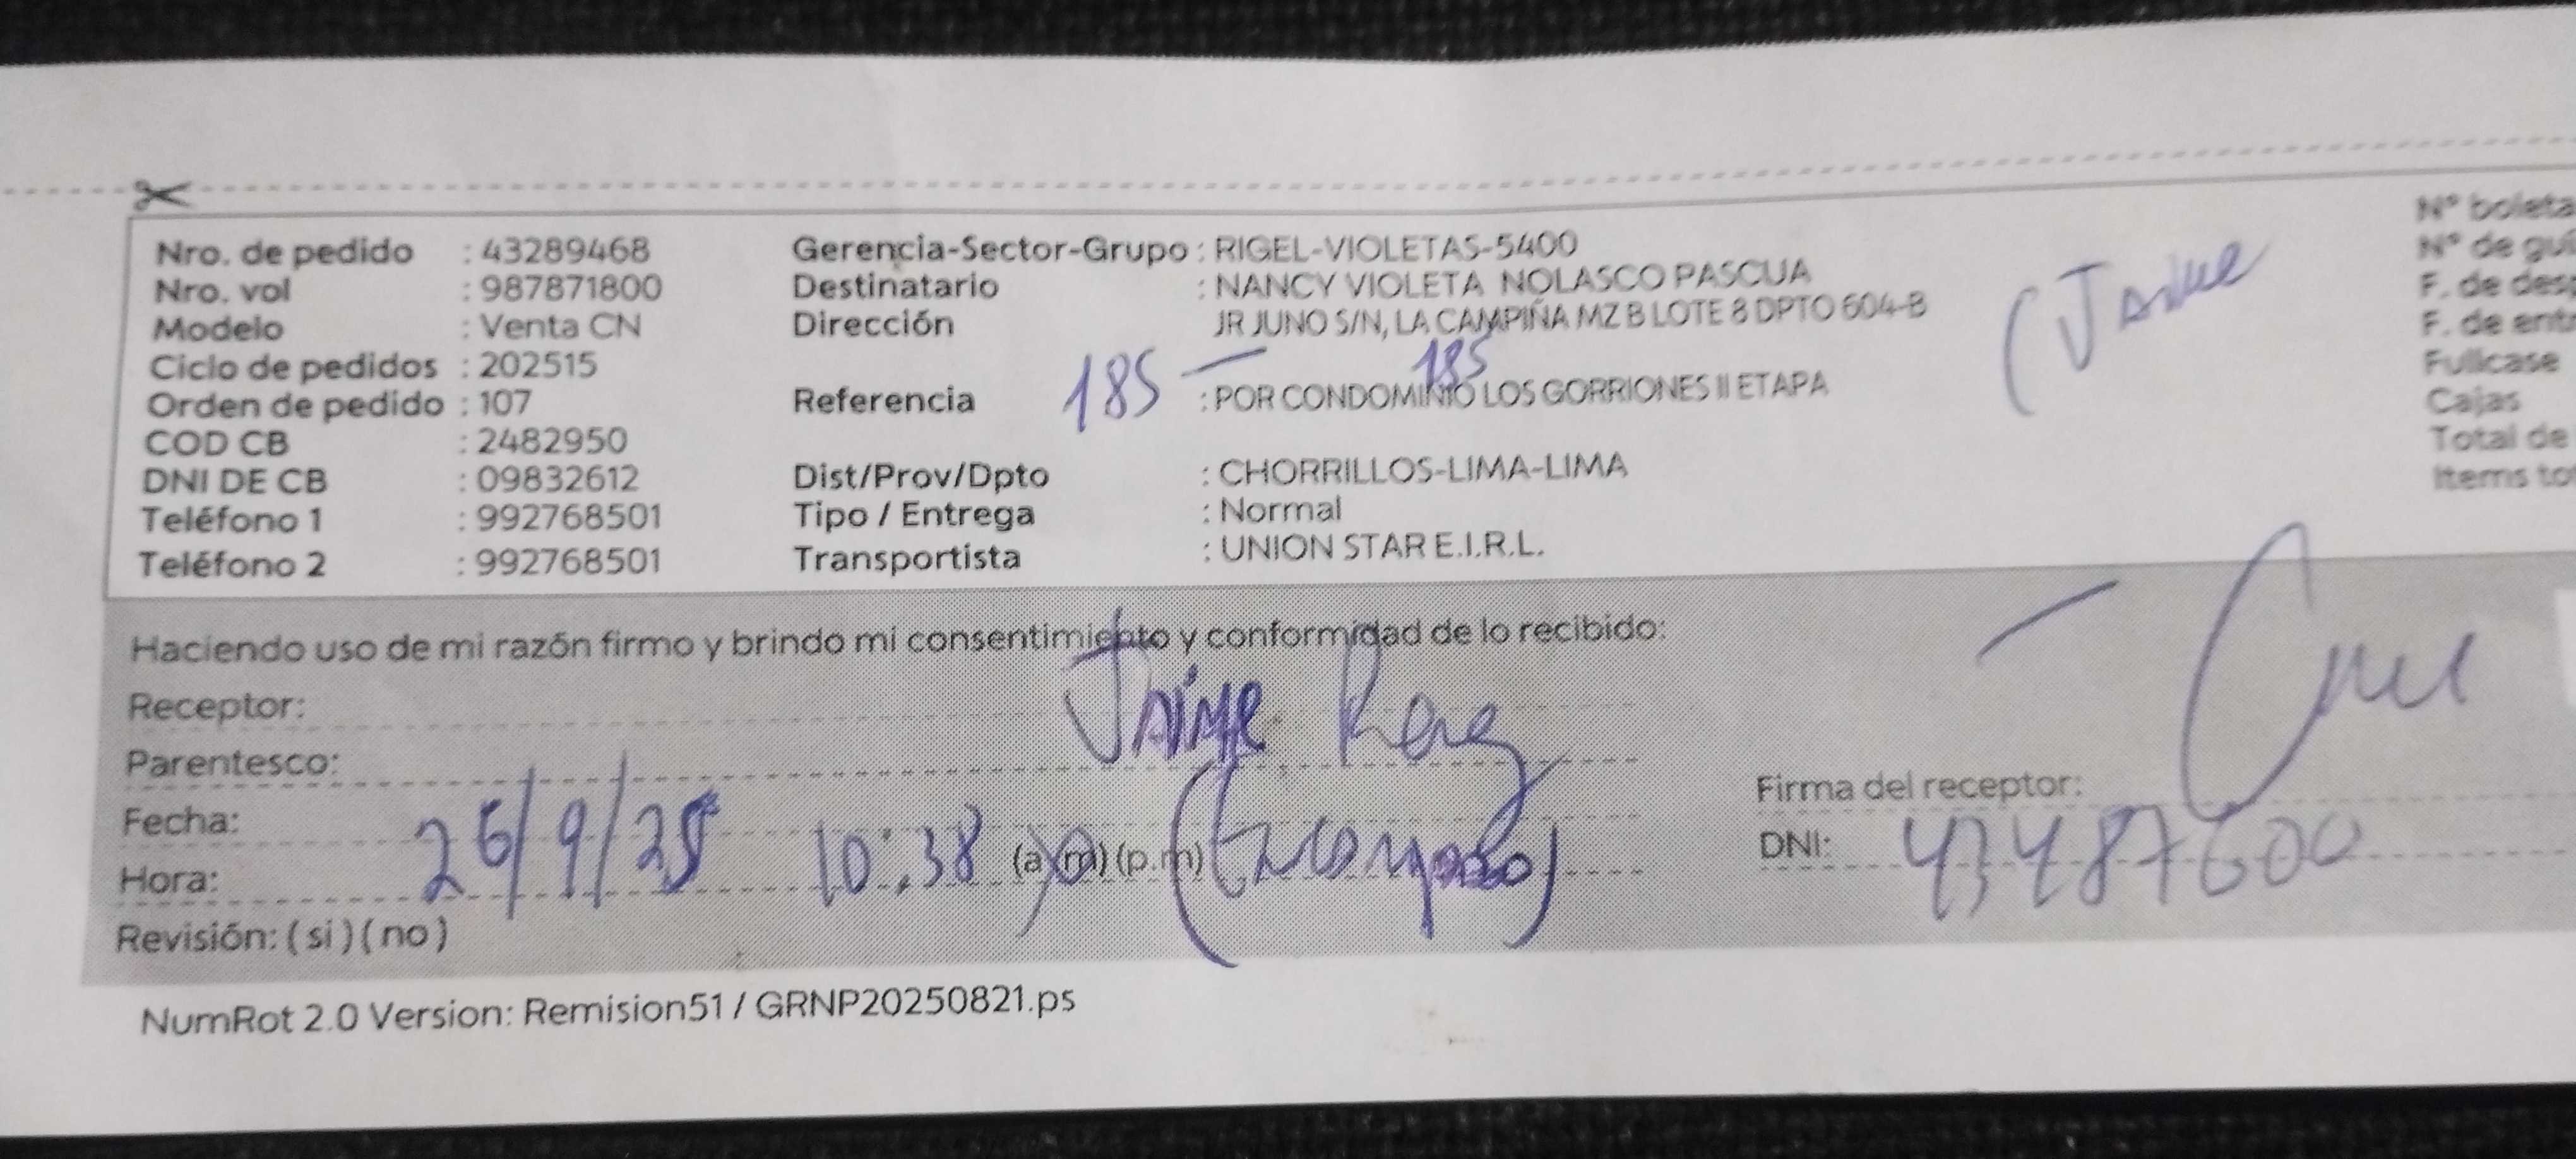 Nro. de pedido : 43289468 Gerencia-Sector-Grupo : RIGEL-VIOLETAS-5400 N° boleta
Nro. vol : 987871800 Destinatario : NANCY VIOLETA NOLASCO PASCUA (Jaime N° de
Modelo : Venta CN Dirección JR JUNO S/N, LA CAMPIÑA MZ B LOTE 8 DPTO 604-B F. de
185
Ciclo de pedidos : 202515 F. de
Orden de pedido : 107 Referencia 185 - : POR CONDOMINIO LOS GORRIONES II ETAPA Fullcase
COD CB : 2482950 Cajas
DNI DE CB : 09832612 Dist/Prov/Dpto : CHORRILLOS-LIMA-LIMA Total de
Teléfono 1 : 992768501 Tipo / Entrega : Normal Items
Teléfono 2 : 992768501 Transportista : UNION STAR E.I.R.L.
Haciendo uso de mi razón firmo y brindo mi consentimiento y conformidad de lo recibido:
Receptor: Jaime
Parentesco:
Fecha: 26/9/25 Firma del receptor:
Hora: 10:38 (a.m) (p.m) DNI: 43487600
Revisión: ( si ) ( no )
NumRot 2.0 Version: Remision51 / GRNP20250821.ps